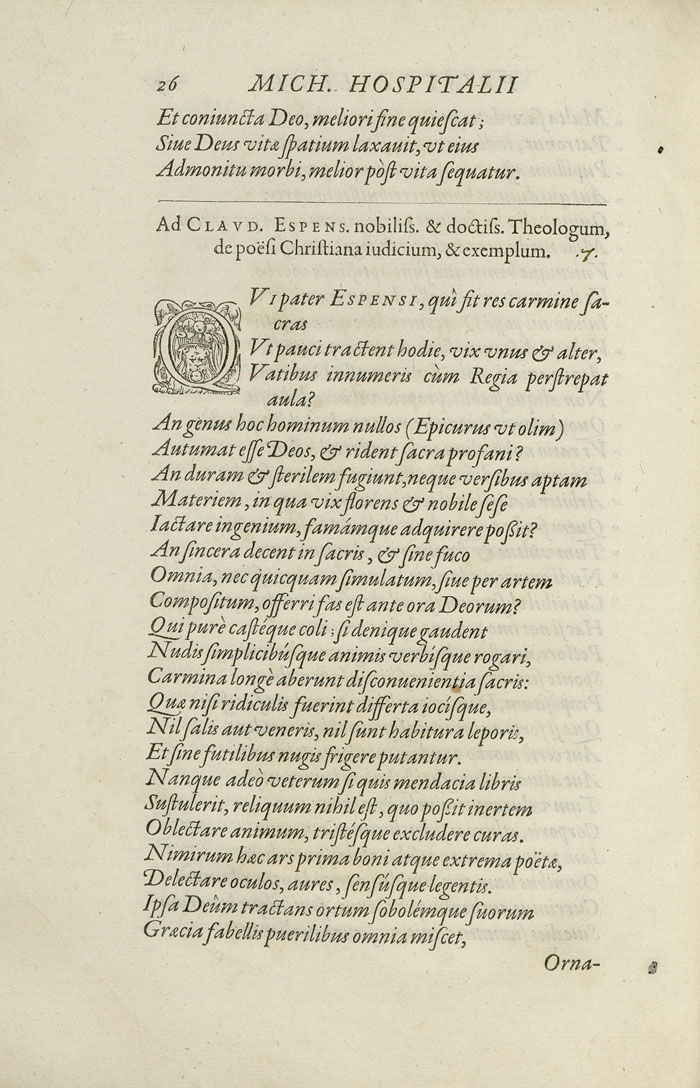 26 MICH. HOSPITALII
Et coniuncta Deo, meliori fine quiescat;
Siue Deus vitæ spatium laxauit, vt eius
Admonitu morbi, melior pòst vita sequatur.
Ad CLAVD. ESPENS. nobiliss. & doctiss. Theologum,
de poësi Christiana iudicium, & exemplum. .7.
QVI pater ESPENSI, quî fit res carmine sa-
cras
Vt pauci tractent hodie, vix vnus & alter,
Vatibus innumeris cùm Regia perstrepat
aula?
An genus hoc hominum nullos (Epicurus vt olim)
Autumat esse Deos, & rident sacra profani?
An duram & sterilem fugiunt, neque versibus aptam
Materiem, in qua vix florens & nobile sese
Iactare ingenium, famámque adquirere poßit?
An sincera decent in sacris, & sine fuco
Omnia, nec quicquam simulatum, siue per artem
Compositum, offerri fas est ante ora Deorum?
Qui purè castéque coli: si denique gaudent
Nudis simplicibúsque animis verbisque rogari,
Carmina longè aberunt disconuenientia sacris:
Quæ nisi ridiculis fuerint differta iocísque,
Nil salis aut veneris, nil sunt habitura leporis,
Et sine futilibus nugis frigere putantur.
Nanque adeò veterum si quis mendacia libris
Sustulerit, reliquum nihil est, quo poßit inertem
Oblectare animum, tristésque excludere curas.
Nimirum hæc ars prima boni atque extrema poëtæ,
Delectare oculos, aures, sensúsque legentis.
Ipsa Deûm tractans ortum sobolémque suorum
Græcia fabellis puerilibus omnia miscet,
Orna-